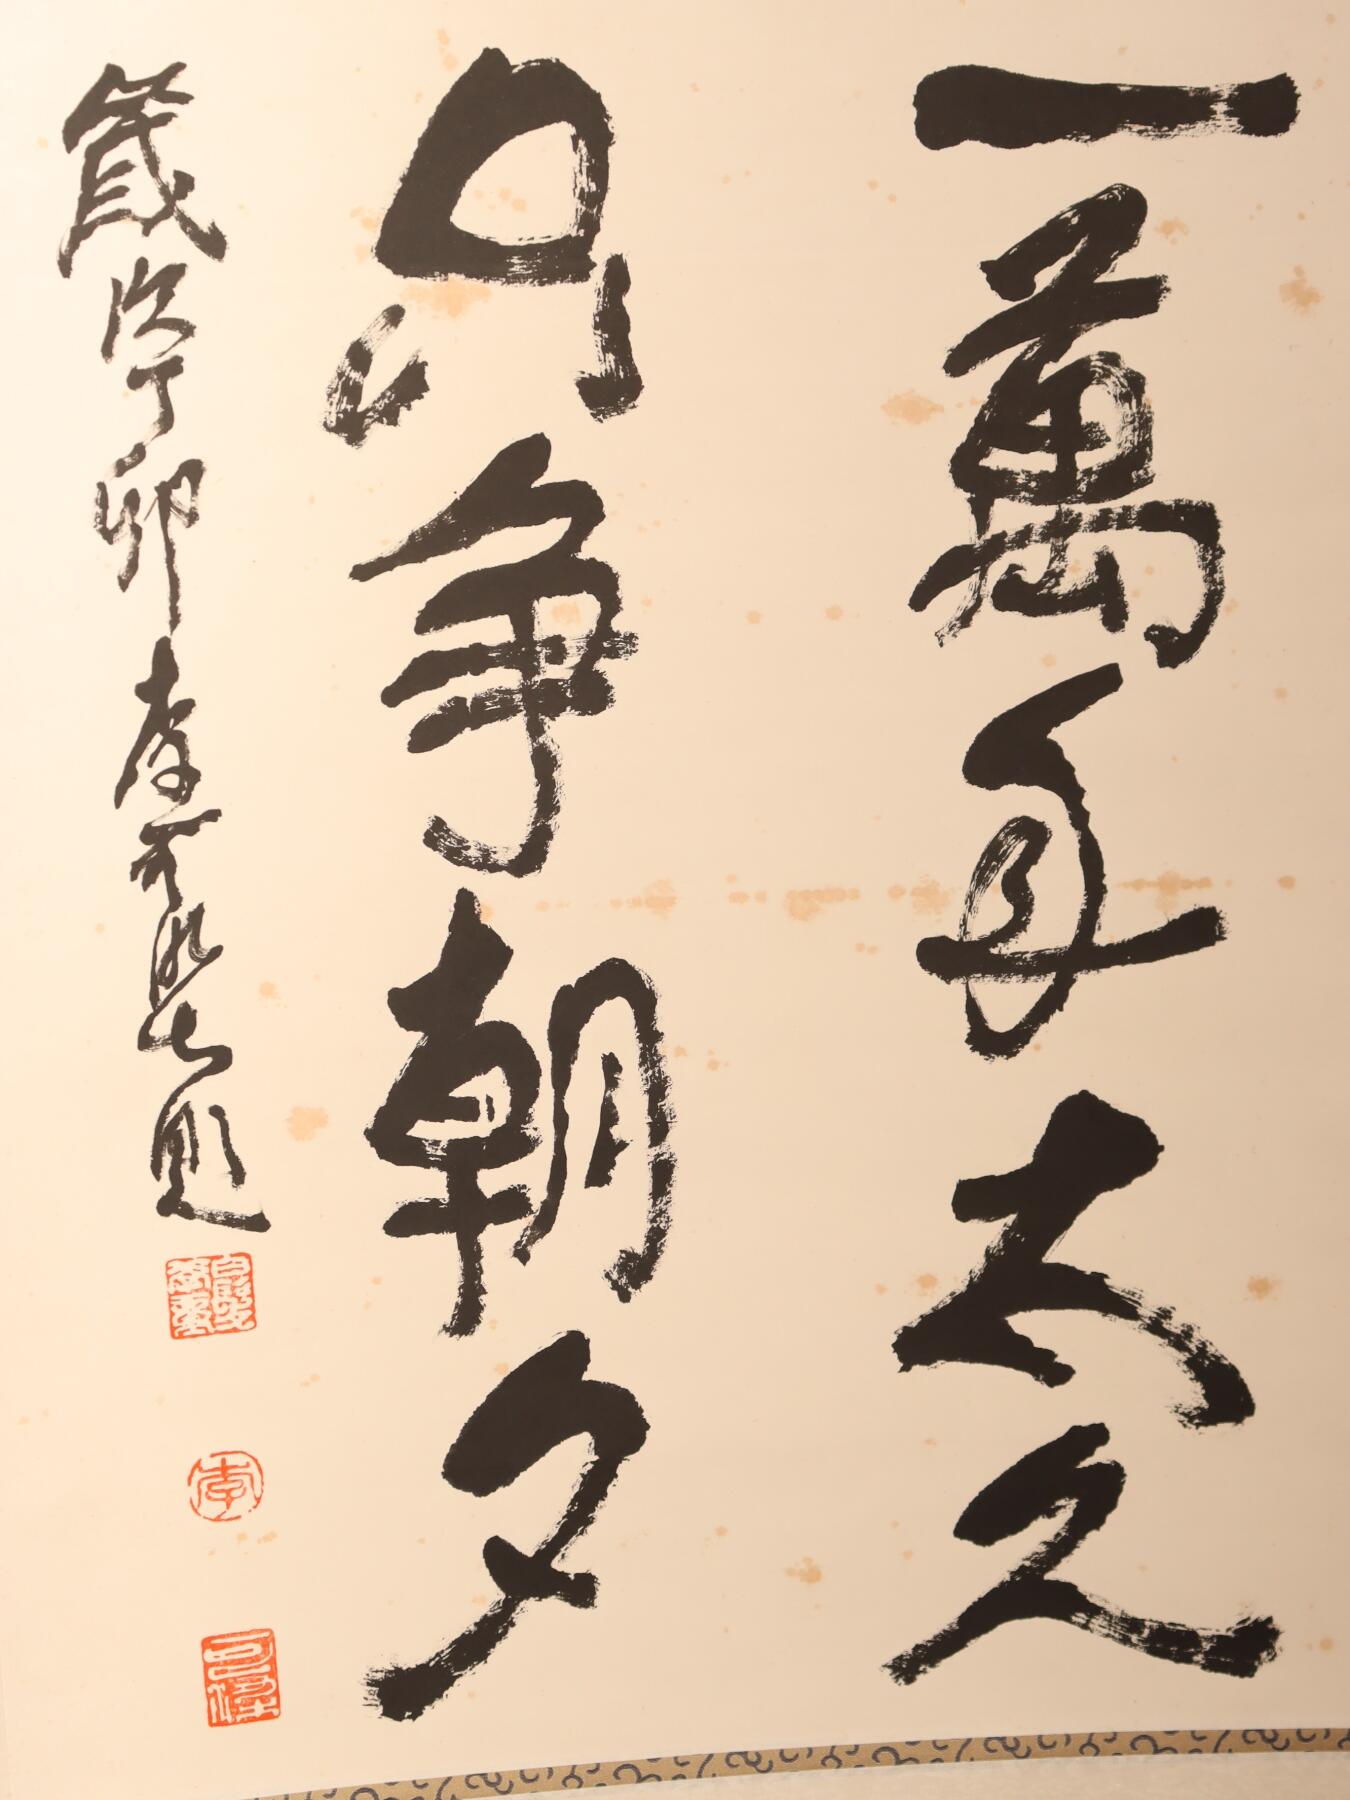 一萬年太久
只争朝夕
歲次丁卯李可染題
李
可染